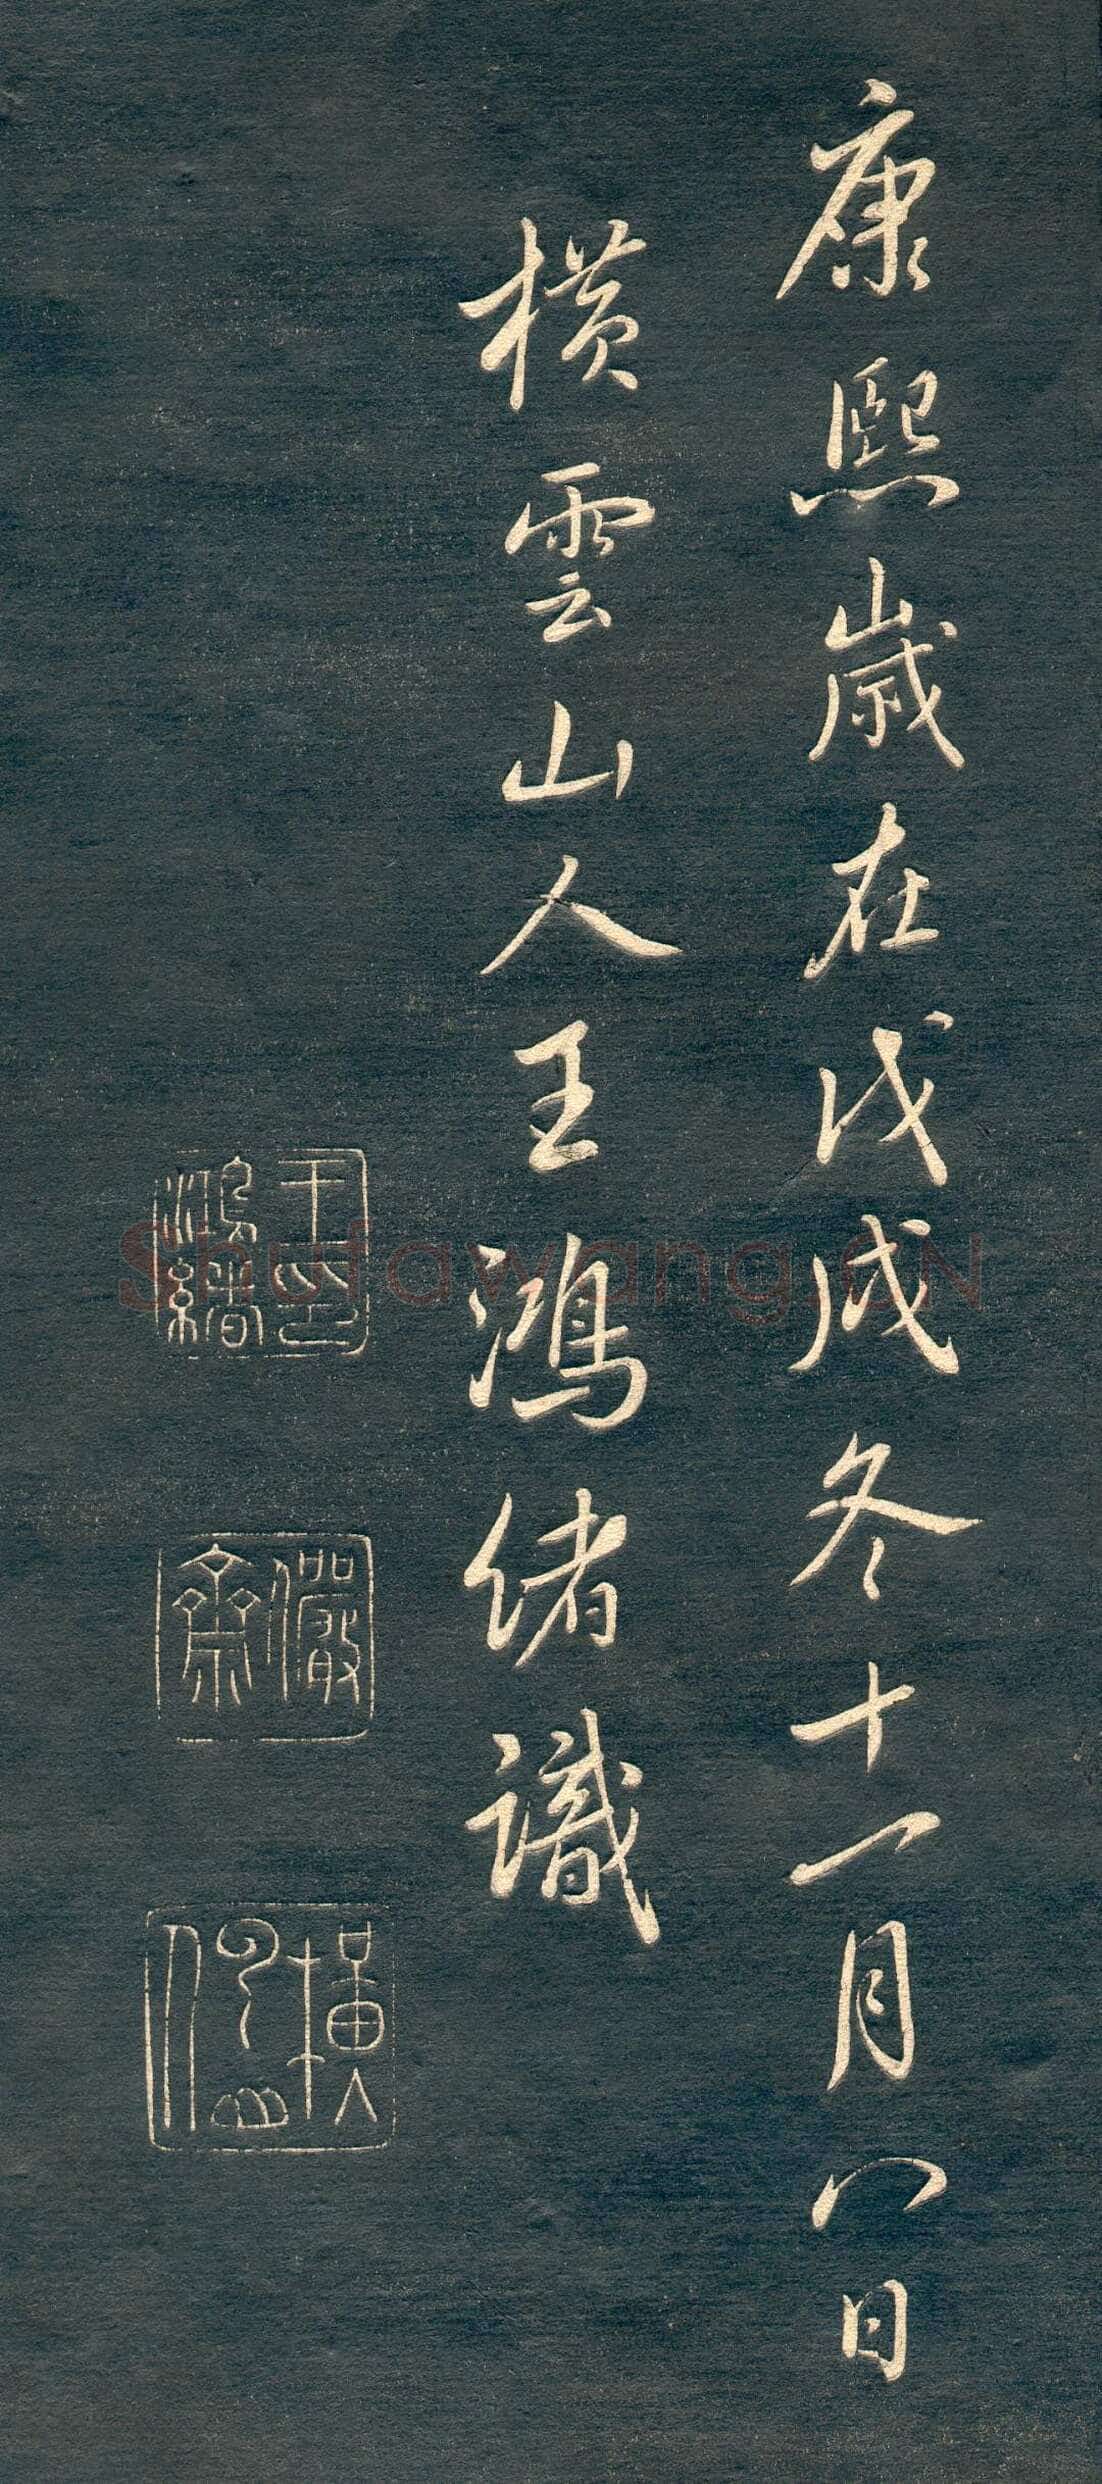 康熙歲在戊戌冬十一月八日
橫雲山人王鴻緒識
王鴻緒印
儼齋
橫雲山人
Shufawang.CN